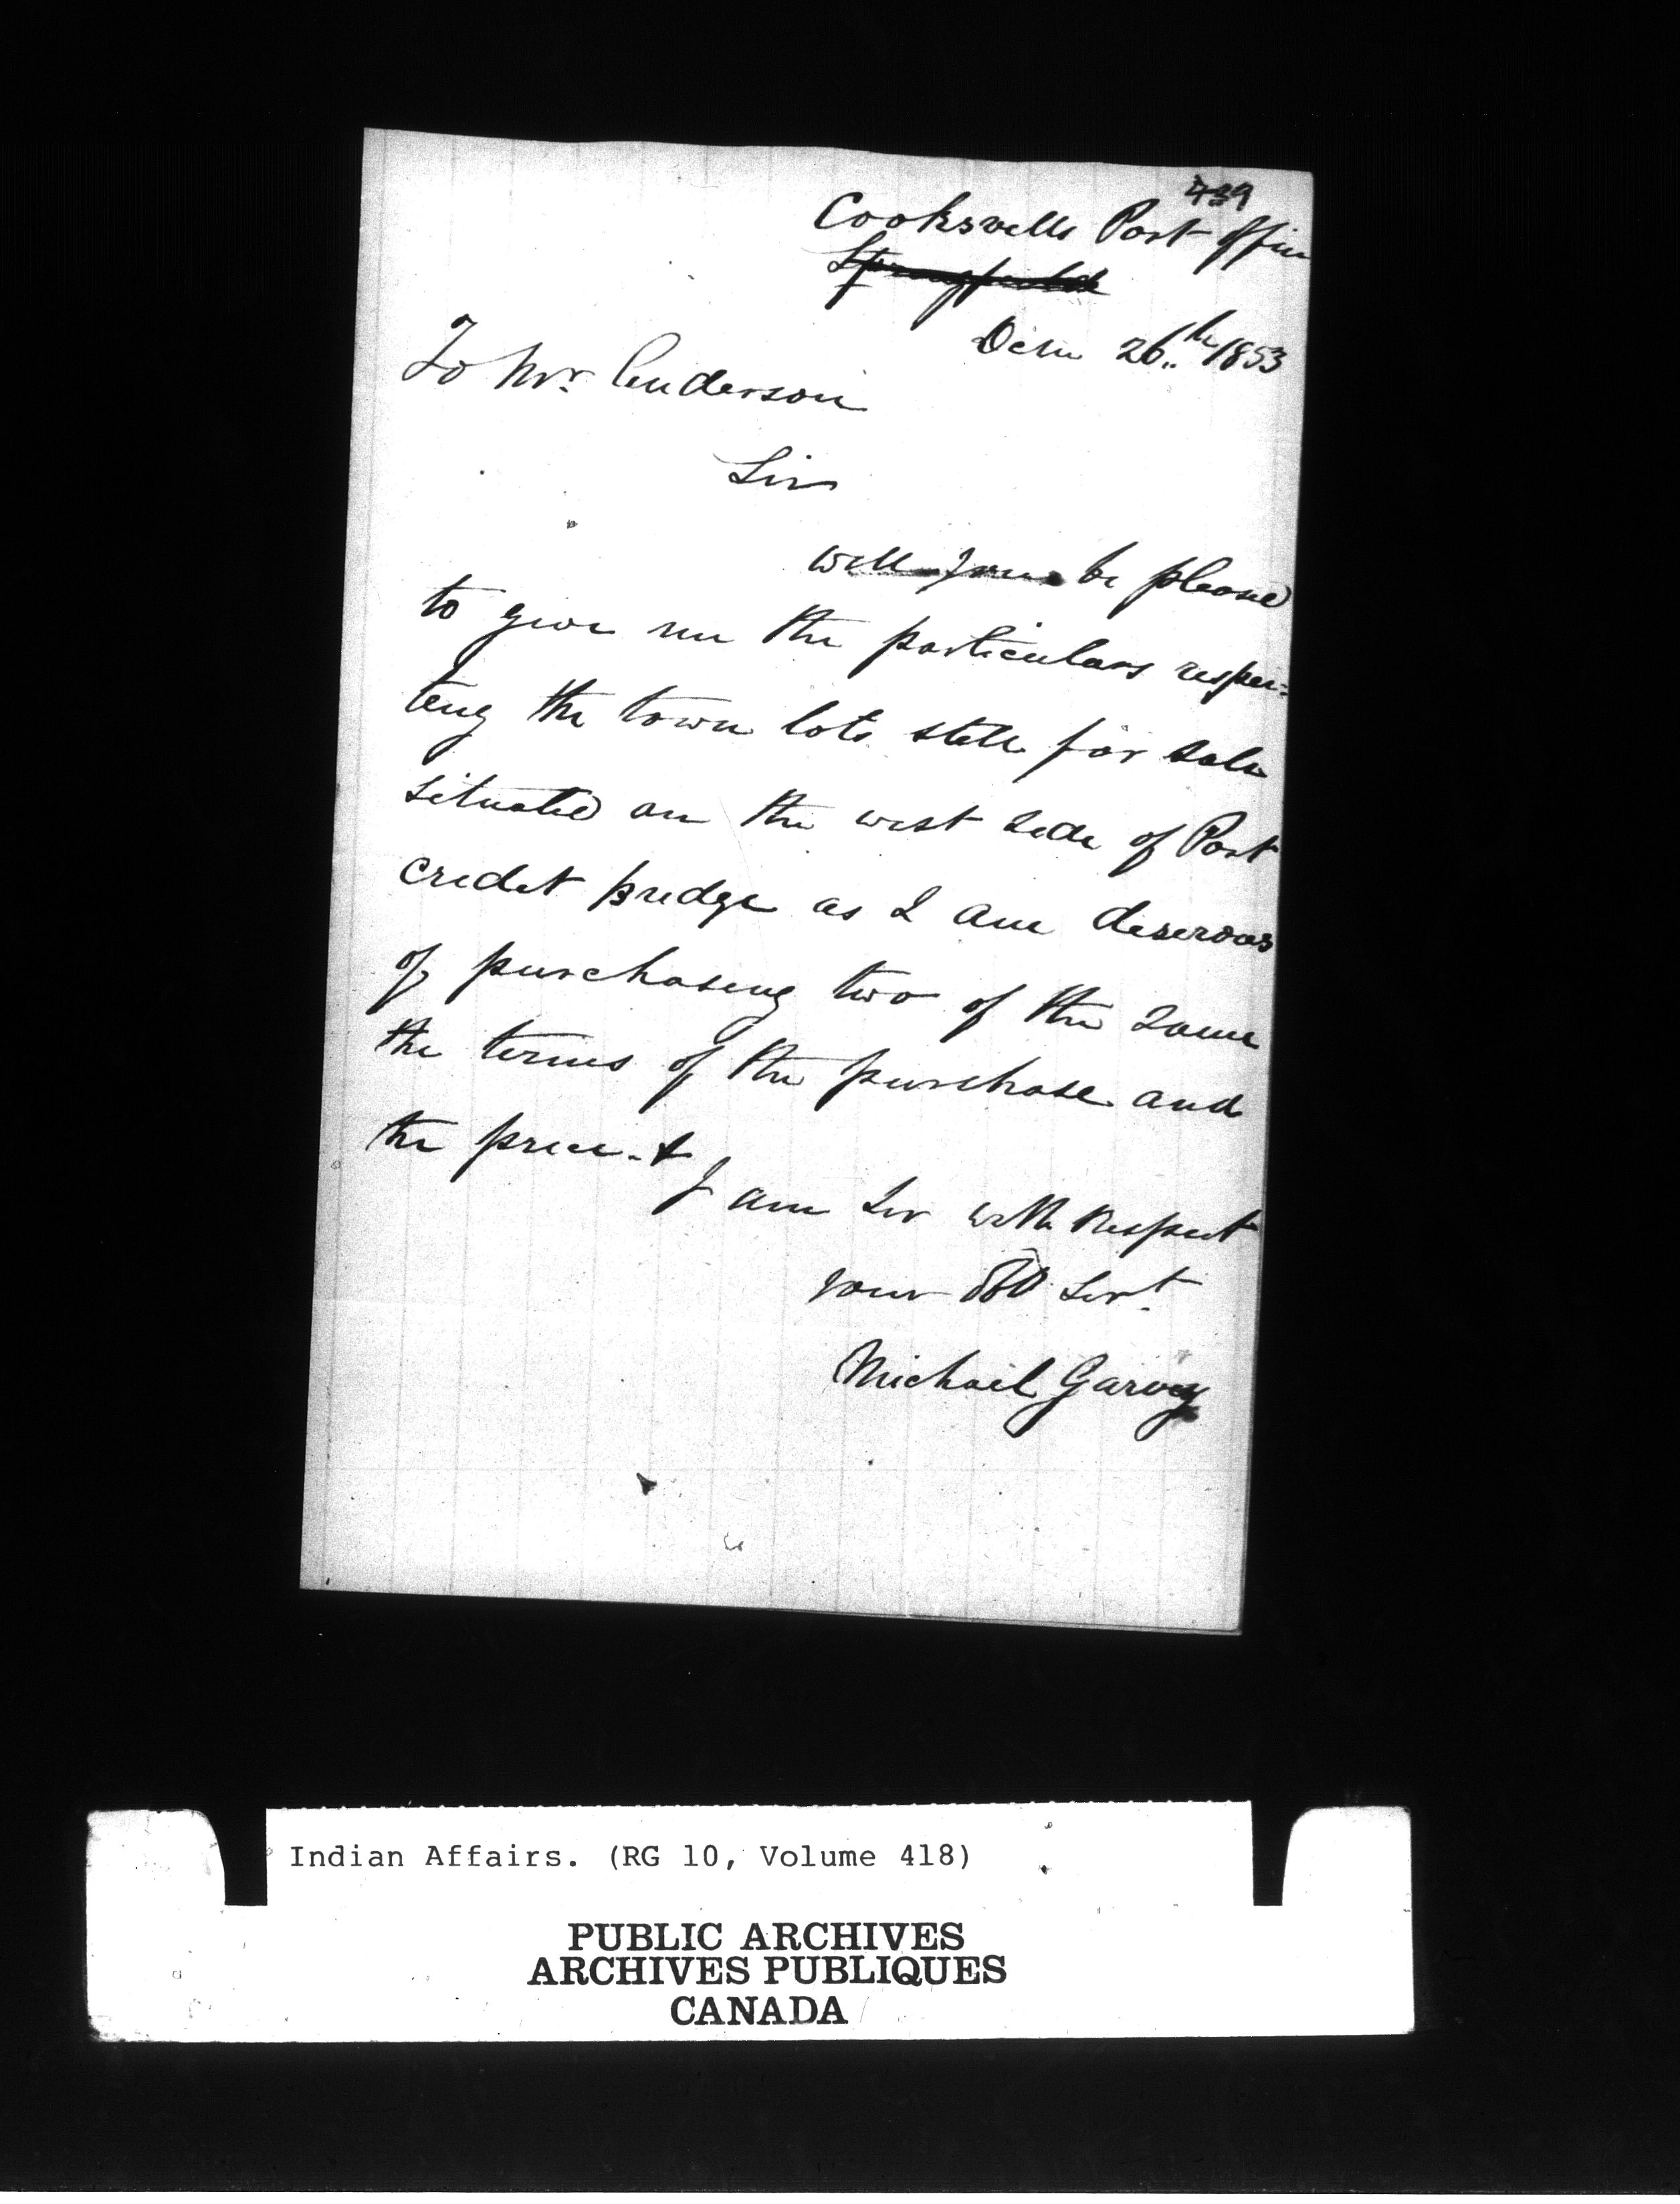 439
Cooksville Post Office
Springfield
Decm 26th 1853
To Mr. Anderson
Sir
will you be pleased
to give me the particulars respec=
ting the town lots still for sale
situated on the west side of Port
credit bridge as I am desirous
of purchasing two of the same
the terms of the purchase and
the price. &
I am Sir with Respect
your Obd Servt.
Michael Garvey
Indian Affairs. (RG 10, Volume 418)
PUBLIC ARCHIVES
ARCHIVES PUBLIQUES
CANADA